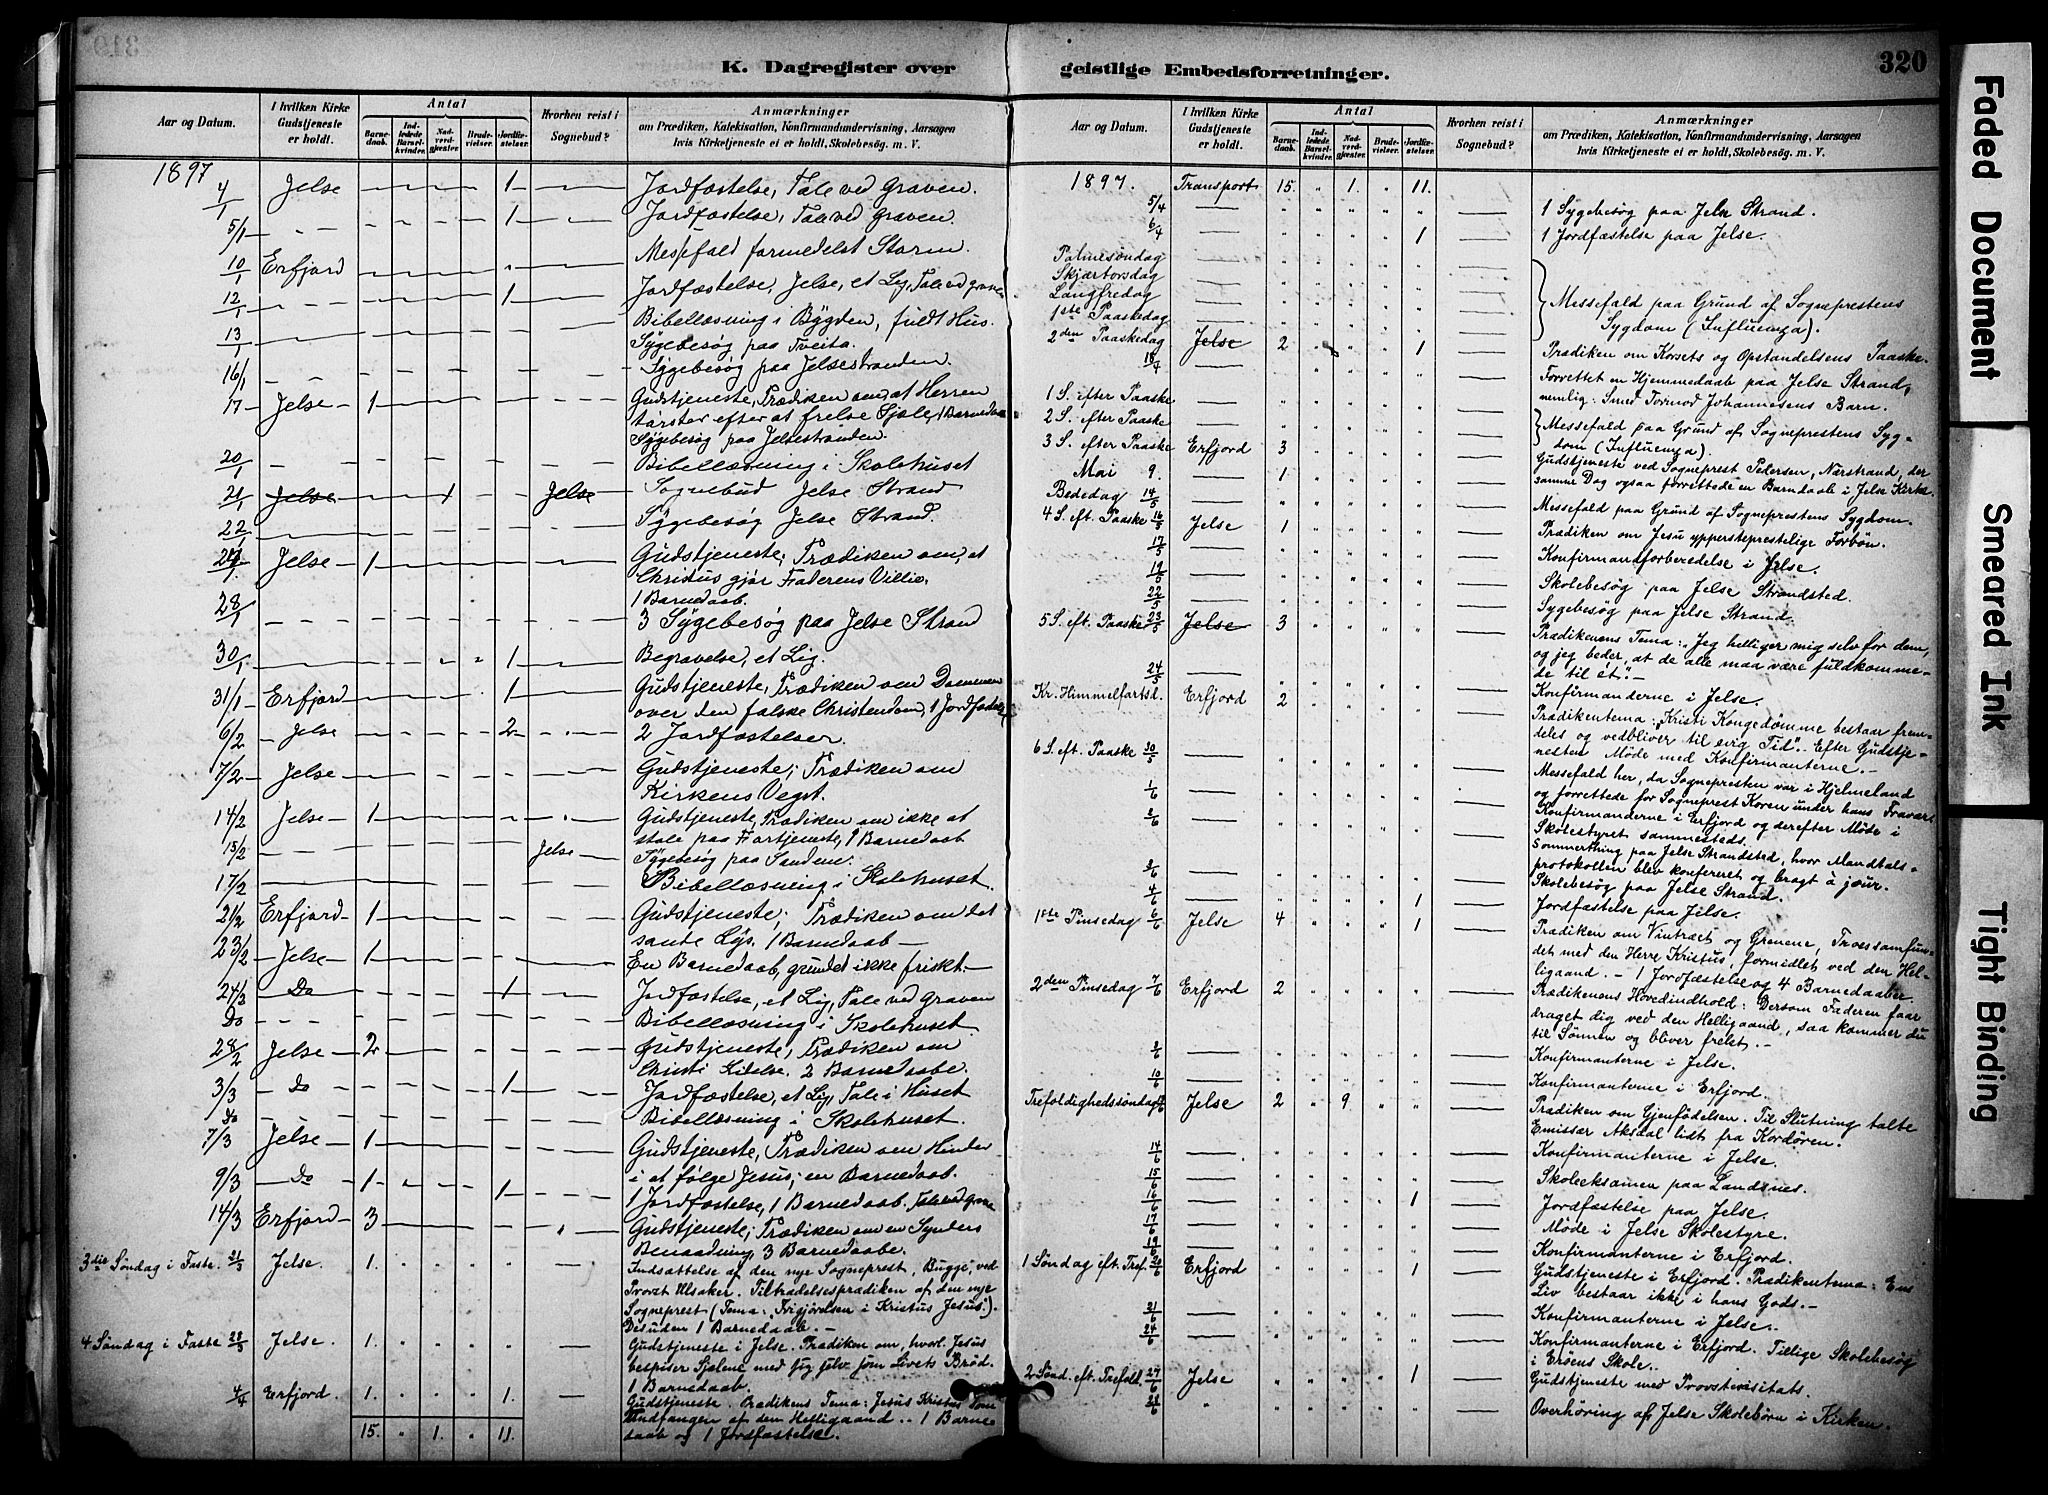 319
320
K. Dagregister over geistlige Embedsforretninger.
Aar og Datum.
I hvilken Kirke Gudstjeneste er holdt.
Antal
Barnedaab.
Indledede Barselkvinder.
Nadverdgjester.
Brudevielser.
Jordfæstelser.
Hvorhen reist i Sognebud?
Anmærkninger
om Prædiken, Katekisation, Konfirmandundervisning, Aarsagen
hvis Kirketjeneste ei er holdt, Skolebesøg. m. V.
1897
4/1 Jelse 1 Jordfæstelse, Tale ved Graven.
5/1 1 Jordfæstelse, Tale ved Graven
10/1 Erfjord Messefald formedelst Storm.
12/1 1 Jordfæstelse, Jelse, et Lig, Tale ved grave
13/1 Bibellæsning i Bygden, fuldt Hus.
Sygebesøg paa Tveita.
16/1 Sygebesøg paa Jelsestranden.
17 Jelse 1 Gudstjeneste, Prædiken om, at Herren
tørster efter at frelse Sjæle, 1 Barnedaab
Sygebesøg paa Jelsestranden.
20/1 Bibellæsning i Skolehuset
21/1 Jelse 1 Jelse Sognebud Jelse Strand
22/1 Sygebesøg Jelse Strand.
24/1 Jelse 1 Gudstjeneste; Prædiken om, at
Christus gjør Faderens Villie.
1 Barnedaab.
28/1 3 Sygebesøg paa Jelse Strand
30/1 1 Begravelse, et Lig.
31/1 Erfjord 1 Gudstjeneste, Prædiken om Dommen
over den falske Christendom, 1 Jordfæstelse
6/2 Jelse 2 2 Jordfæstelser.
7/2 Jelse Gudstjeneste; Prædiken om
Kirkens Vegst.
14/2 Jelse 1 Gudstjeneste, Prædiken om ikke at
stole paa Fortjeneste, 1 Barnedaab
15/2 Jelse Sygebesøg paa Sandene.
17/2 Bibellæsning i Skolehuset.
21/2 Erfjord 1 Gudstjeneste; Prædiken om det
sande Lys, 1 Barnedaab
23/2 Jelse 1 En Barnedaab, grundet ikke friskt.
24/2 Do 1 Jordfæstelse, et Lig, Tale ved Graven
Do Bibellæsning i Skolehuset.
28/2 Jelse 2 Gudstjeneste, Prædiken om
Christi Lidelse. 2 Barnedaabe.
3/3 Do 1 Jordfæstelse, et Lig, Tale i Huset
Do Bibellæsning i Skolehuset.
7/3 Jelse 1 Gudstjeneste, Prædiken om Hinder
i at følge Jesus; en Barnedaab.
9/3 Do 1 1 1 Jordfæstelse, 1 Barnedaab. Tale ved Grave
14/3 Erfjord 3 Gudstjeneste; Prædiken om en Synders
Benaadning, 3 Barnedaabe.
3die Søndag i Faste. 21/3 Jelse. 1. Indsættelse af den nye Sogneprest, Bugge ved
Provst Ulsaker. Tiltrædelsesprædiken af den nye
Sogneprest (Tema: Frigjørelsen i Kristus Jesus).
Desuden 1 Barnedaab.
4. Søndag i Faste 28/3 Jelse. 1. Gudstjeneste i Jelse. Prædiken om, hvorl. Jesus
bespiser Sjælene med sig selv som Livets Brød.
1 Barnedaab.
4/4 Erfjord. 1. 1. Gudstjeneste. Prædikens Tema: Jesus Kristus som
Undfangen af den Helligaand. 1 Barne-
daab og 1 Jordfæstelse.
15. " 1. " 11.
Aar og Datum.
I hvilken Kirke Gudstjeneste er holdt.
Antal
Barnedaab.
Indledede Barselkvinder.
Nadverdgjester.
Brudevielser.
Jordfæstelser.
Hvorhen reist i Sognebud?
Anmærkninger
om Prædiken, Katekisation, Konfirmandundervisning, Aarsagen
hvis Kirketjeneste ei er holdt, Skolebesøg. m. V.
1897. Transport 15. " 1. " 11.
5/4 1 Sygebesøg paa Jelse Strand.
6/4 1 1 Jordfæstelse paa Jelse.
Palmesøndag
Skjærtorsdag
Langfredag Messefald paa Grund af Sogneprestens
1ste Paaskedag Sygdom (Influenza).
2den Paaskedag Jelse 2 1 Prædiken om Korsets og Opstandelsens Paaske.
18/4 Forrettet en Hjemmedaab paa Jelse Strand,
nemlig: Smed Tormod Johannesens Barn.
1 S. efter Paaske
2 S. efter Paaske Messefald paa Grund af Sogneprestens Syg-
dom (Influenza).
3 S. efter Paaske Erfjord 3 Gudstjeneste ved Sogneprest Pedersen, Nærstrand, der
Mai 9. 1 samme Dag ogsaa forrettede en Barnedaab i Jelse Kirke.
Bededag 14/5 Messefald paa Grund af Sogneprestens Sygdom.
4 S. eft. Paaske 16/5 Jelse 1 Prædiken om Jesu yppersteprestelige Forbøn.
17/5 Konfirmandforberedelse i Jelse.
19/5 Skolebesøg paa Jelse Strandsted.
22/5 Sygebesøg paa Jelse Strand.
5 S. eft. Paaske 23/5 Jelse 3 Prædikenens Tema: Jeg helliger mig selv for dem,
og jeg beder, at de alle maa være fuldkomme-
de til ét".
24/5 Konfirmanderne i Jelse.
Kr. Himmelfartsd. Erfjord 2 Prædikentema: Kristi Kongedømme bestaar frem-
deles og vedbliver til evig Tid". Efter Gudstje-
nesten Møde med Konfirmanterne.
6 S. eft. Paaske 30/5 Messefald her, da Sognepresten var i Hjelmeland
og forrettede for Sogneprest Koren under hans Fravær.
1/6 Konfirmanderne i Erfjord og derefter Møde i
Skolestyret sammesteds.
2/6 Sommerthing paa Jelse Strandsted, hvor Mandtals-
protokollen blev konfereret og bragt à jour.
3/6 Skolebesøg paa Jelse Strand.
4/6 1 Jordfæstelse paa Jelse.
1ste Pinsedag 6/6 Jelse 4 1 Prædiken om Vintræet og Grenene, Troessamfun-
det med den Herre Kristus, formidlet ved den Hel-
ligaand. - 1 Jordfæstelse og 4 Barnedaaber.
2den Pinsedag 7/6 Erfjord 2 Prædikenens Hovedindhold: Dersom Faderen faar
draget dig ved den Helligaand, saa kommer du
til Sønnen og bliver frelst.
8/6 Konfirmanterne i Jelse.
10/6 Konfirmanterne i Erfjord.
Trefoldighedssøndag Jelse 2 9 Prædiken om Gjenfødelsen. Til Slutning talte
Emissær Aksdal lidt fra Kordøren.
14/6 Konfirmanterne i Jelse.
15/6 Skoleeksamen paa Landsnes.
16/6 1 Jordfæstelse paa Jelse.
17/6 Møde i Jelse Skolestyre.
19/6 Konfirmanterne i Erfjord.
1 Søndag eft. Tref. 20/6 Erfjord 1 Gudstjeneste i Erfjord. Prædikentema: Ens
Liv bestaar ikke i hans Gods.
21/6 Konfirmanterne i Jelse.
24/6 Konfirmanterne i Erfjord. Tillige Skolebesøg
i Erøens Skole.
2 Sønd. eft. Trefold. 27/6 Jelse 1 Gudstjeneste med Provstevisitats.
28/6 " Overhøring af Jelse Skolebørn i Kirken.
Faded Document
Smeared Ink
Tight Binding